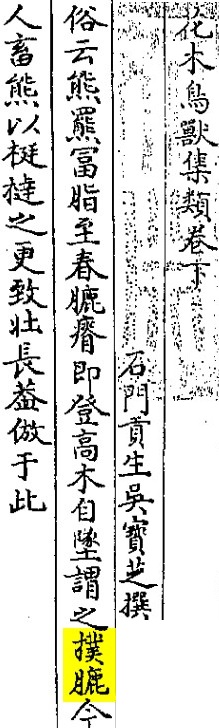 花木鳥獸集類卷下
石門貢生吳寶芝撰
俗云熊羆富脂至春臕癠即登高木自墜謂之撲臕今
人畜熊以梃撻之更致壯長蓋倣于此